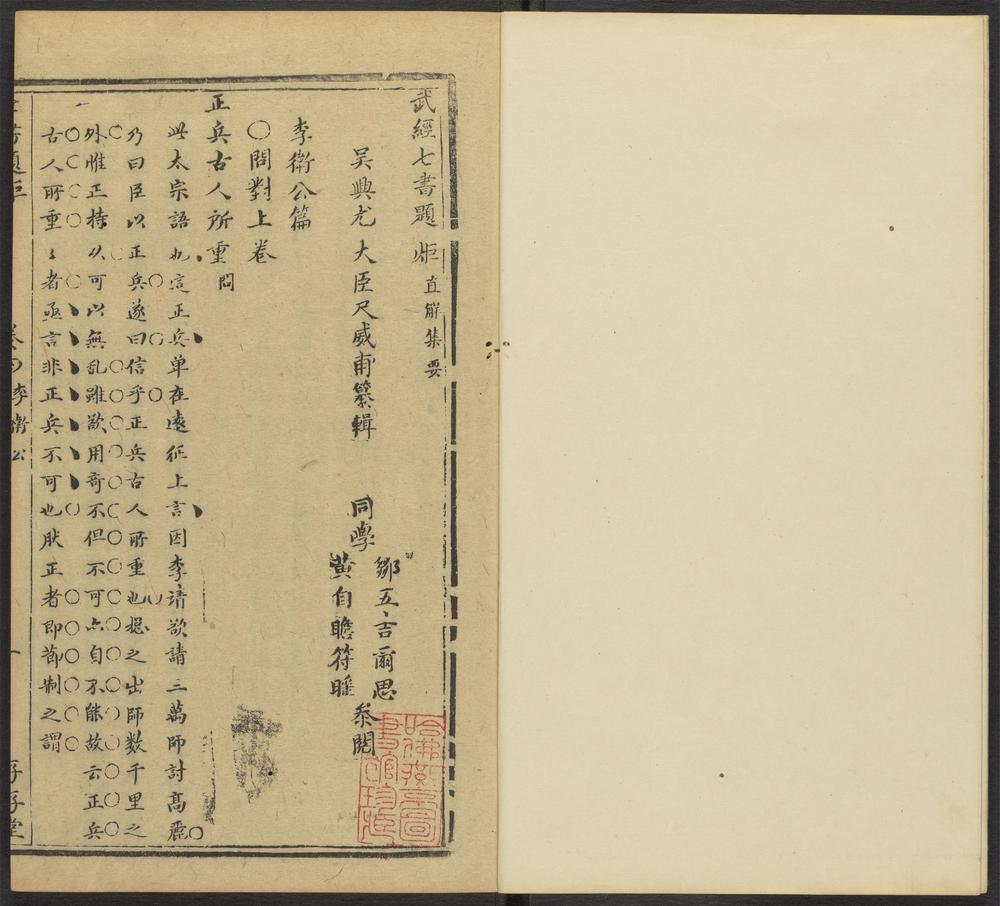 武經七書題炬直解集要
吴興尤大臣尺威甫纂輯
同學
鄒五吉爾思
黄自瞻符
叅閱
李衛公篇
〇問對上卷
正兵古人所重問
此太宗語也這正兵单在遠征上言因李靖欲請三萬師討高麗
乃曰臣以正兵遂曰信乎正兵古人所重也揔之出師数千里之
外惟正持以可以無乱雖欲用奇不但不可亦自不能故云正兵
古人所重重者亟言非正兵不可也肰正者即節制之謂
李衛公
一
哈佛燕京圖書館珍藏